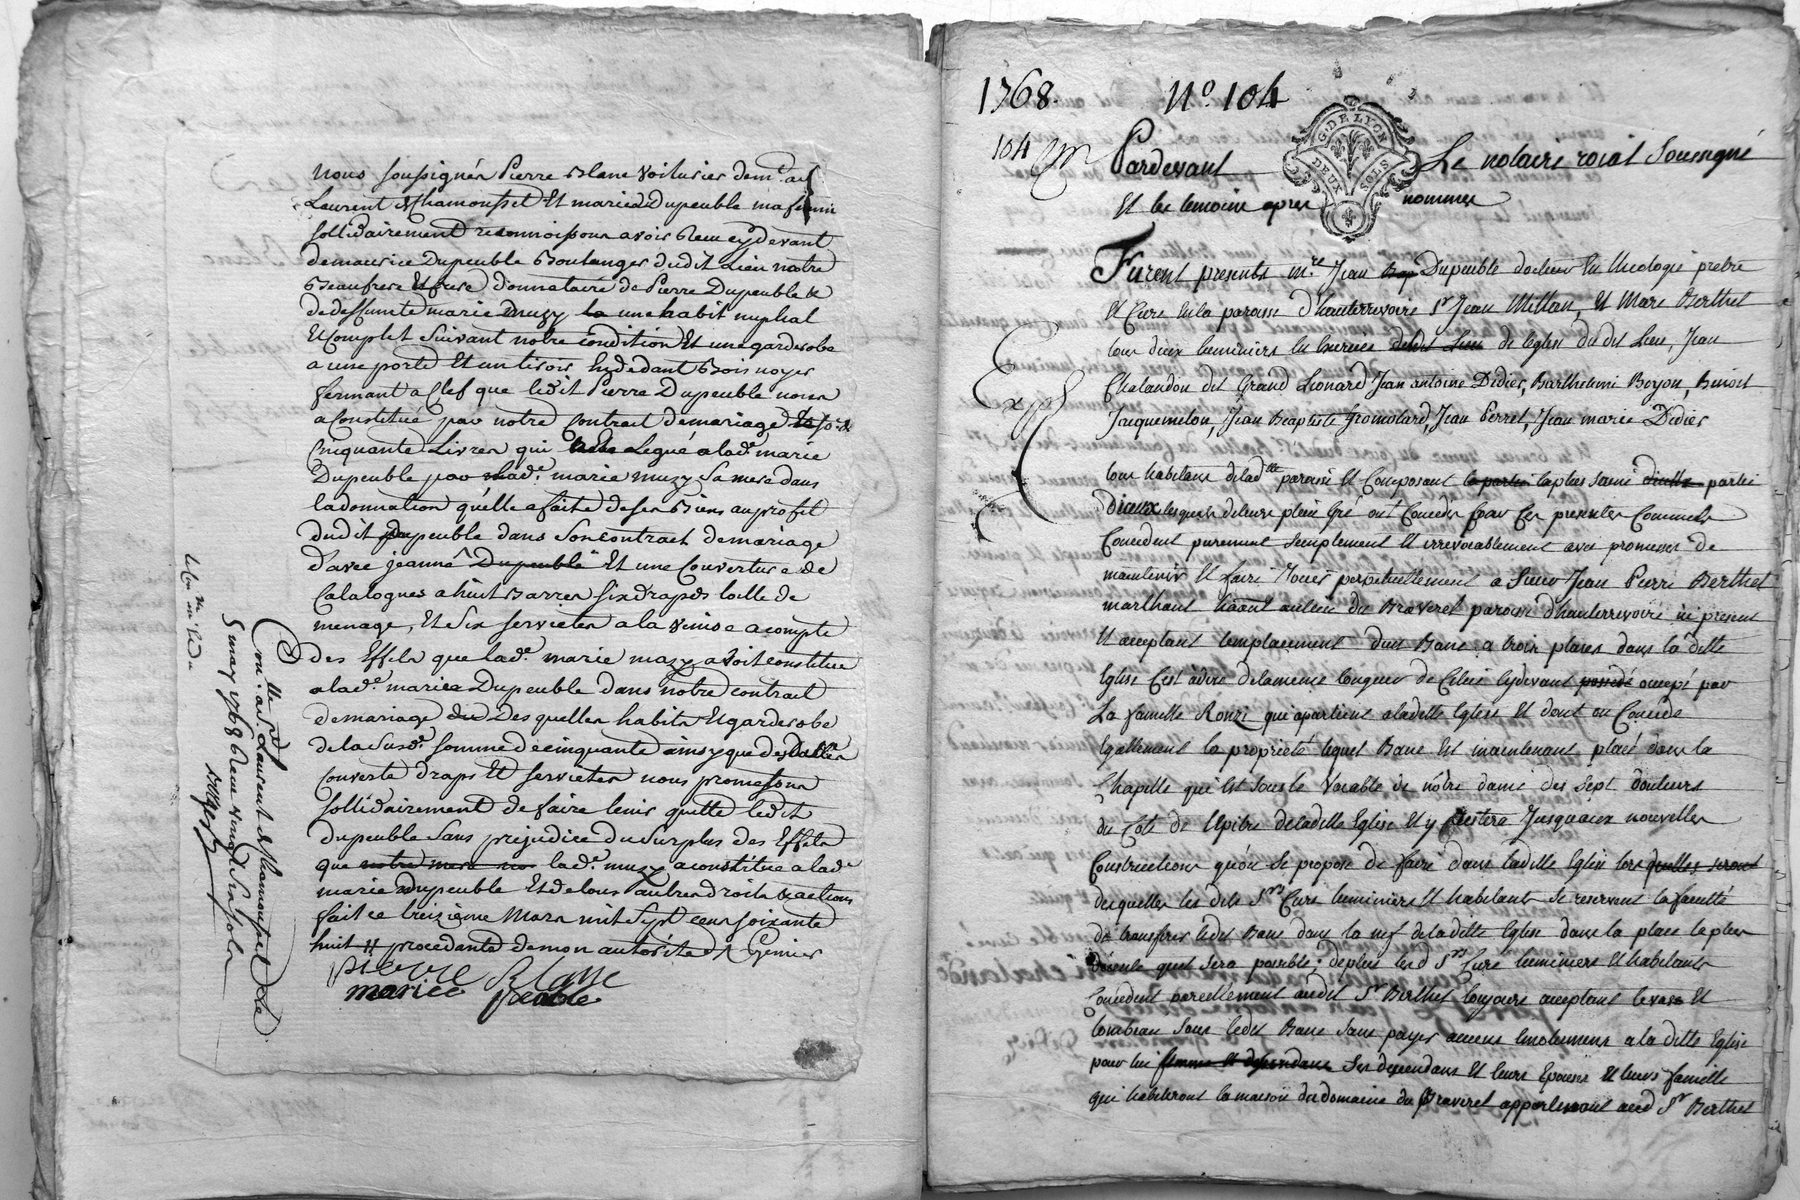 nous soussignés Pierre Blanc voiturier dem.t au
Laurent de Chamousset Et marie Dupeuble ma femme
sollidairement reconnoissons avoir Receu cydevant
de maurice Dupeuble Boulanger dudit Lieu notre
Beaufrere Et frere Donnataire de Pierre Dupeuble &
de deffunte marie muzy un habit nuptial
Et Complet suivant notre condition Et une garderobe
a une porte Et un tiroir au dedant Bois noyer
fermant a Clef que ledit Pierre Dupeuble nous
a Constitué par notre Contrat de mariage
Cinquante Livres qui Legué a lad.e marie
Dupeuble par lad.e marie muzy sa mere dans
la donnation qu'elle a faite de ses Biens au profit
dudit Dupeuble dans son contrat de mariage
d'avec jeanne Dupeuble Et une Couverture de
Catalognes a huit Barres six draps toille de
menage, Et six serviettes a la Venise a compte
Des Effets que lad.e marie muzy avoit constitué
a lad.e marie Dupeuble dans notre contrat
de mariage Desquelles habits Et garderobe
de la susd.e somme de cinquante ainsy que desdittes
Couverte draps Et serviettes nous promettons
sollidairement de faire tenir quitte ledit
dupeuble sans prejudice du surplus des Effets
que notre mere lad.e muzy a constitué a lad.e
marie dupeuble Et de tous autres droits & actions
fait ce treizieme Mars mil sept cens soixante
huit procedante de mon autorité
pierre Blanc
marie peuble
Con.lle a S.t Laurent de Chamousset le
5 may 1768 Receu vingt six sols
1768.
N.o 104
104
G. DE LYON
DEUX SOLS
Pardevant Le notaire roial soussigné
Et les temoins apres nommes
Furent presents m.re Jean Dupeuble docteur En theologie pretre
Et Cure en la paroisse d'hauterrivoire S.r Jean Mettan, Et Marc Berthet
tous deux luminiers En Exercice dudit Lieu de leglise du dit Lieu, Jean
Chalandon dit Grand Leonard Jean antoine Didier, Barthelemi Boyon, Benoit
Jacquemeton, Jean Baptiste Fromotard, Jean Perret, Jean marie Didier
tous habitans de lad.tte paroisse Et Composant la partie la plus saine partie
Diceux lesquels de leurs plein Gré ont Concedés par Ces presentes Comme ils
Concedent purement simplement Et irrevocablement avec promesse de
maintenir Et faire Jouir perpetuellement a Sieur Jean Pierre Berthet
marchant au lieu du Braveret paroisse d'hauterrivoire ici present
Et acceptant lemplacement d'un Banc a trois places dans la ditte
Eglise C'est adire de la meme longueur de Celui Cydevant possedé occupé par
La famille Ronzi qui apartient a la ditte Eglise Et dont on Concede
Egallement la propriété lequel Banc Est maintenant placé dans la
Chapelle qui Est sous le Vocable de nôtre dame des sept douleurs
du Coté de l'Epitre de la ditte Eglise Et y restera Jusquaux nouvelles
Constructions qu'on se propose de faire dans laditte Eglise lors quelles seront
desquelles les dits S.rs Curé luminiers Et habitants se reservent la faculté
de transferer ledit Banc dans la nef de la ditte Eglise dans la place la plus
décente quil sera possible; deplus les d. S.rs Curé luminiers Et habitants
Concedent pareillement audit S.r Berthet toujours acceptant le vas Et
tombeau sous ledit Banc sans payer aucuns Emolumens a la ditte Eglise
pour lui femme Et descendans Ses descendans Et leurs Epouses Et leurs famille
qui habiteront la maison du domaine du Braveret appartenant aud S.r Berthet